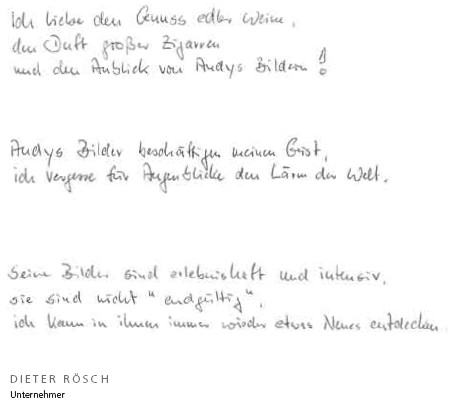 Ich liebe den Genuss edler Weine,
den Duft großer Zigarren
und den Anblick von Andys Bildern!
Andys Bilder beschäftigen meinen Geist,
ich vergesse für Augenblicke den Lärm der Welt.
Seine Bilder sind erlebnishaft und intensiv,
sie sind nicht "endgültig",
ich kann in ihnen immer wieder etwas Neues entdecken.
DIETER RÖSCH
Unternehmer